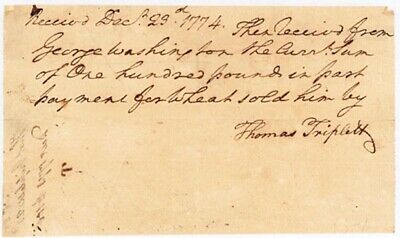 Receivd Decr. 23d. 1774. Then Receivd from
George Washington the Currt. Sum
of One hundred pounds in part
payment for Wheat sold him by
Thomas Triplett